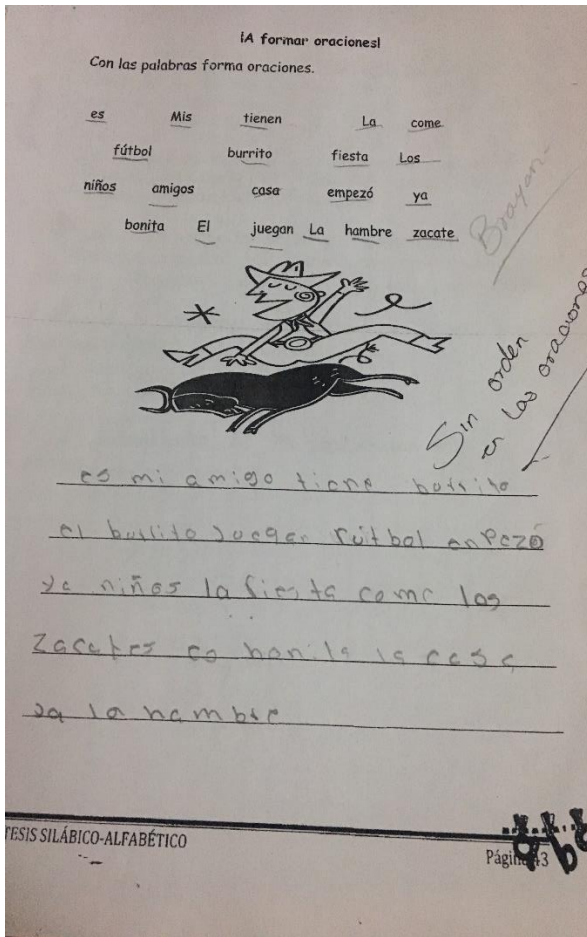 ¡A formar oraciones!
Con las palabras forma oraciones.
es Mis tienen La come
fútbol burrito fiesta Los
niños amigos casa empezó ya
bonita El juegan La hambre zacate
Brayan-
Sin orden
en las oraciones
es mi amigo tiene burrito
el burrito juegan fuitbol enpezó
ya niños la fiesta come los
zacates es bonita la casa
ya la hambre
TESIS SILÁBICO-ALFABÉTICO
Página 43
abc